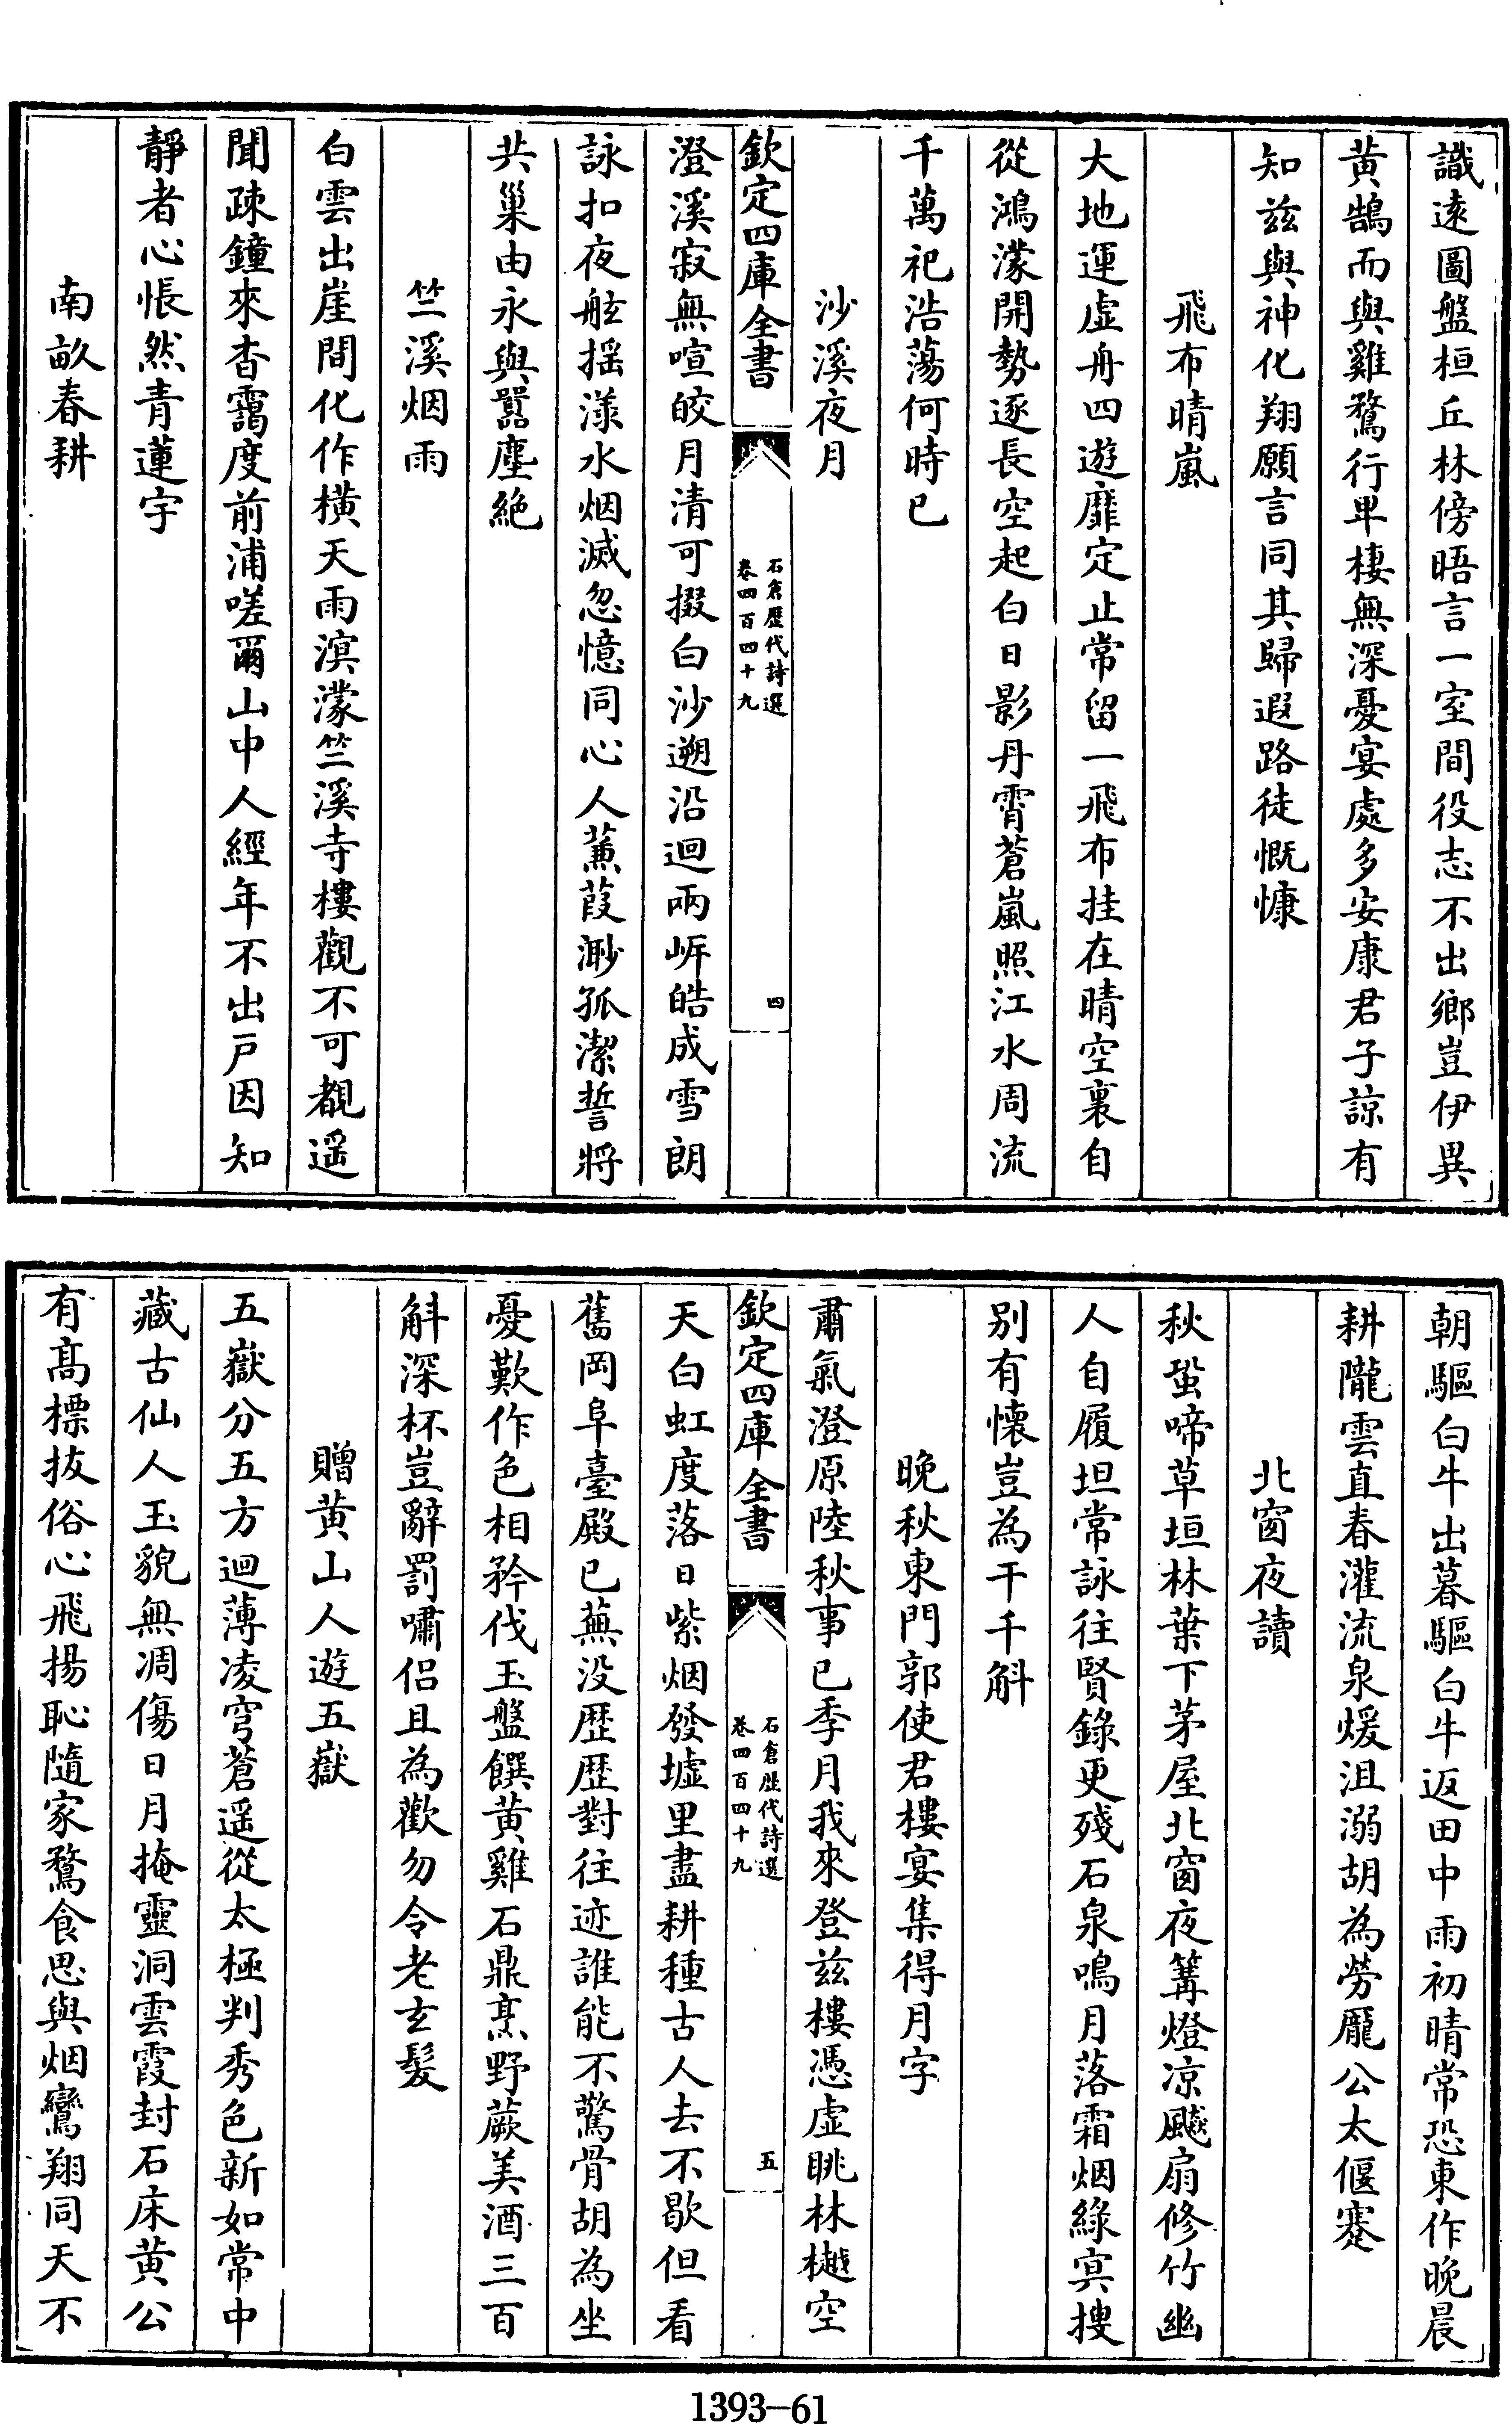 識遠圖盤桓丘林傍晤言一室間役志不出鄉豈伊異
黄鵠而與雞鶩行卑棲無深憂宴處多安康君子諒有
知兹與神化翔願言同其歸遐路徒慨慷
飛布晴嵐
大地運虚舟四遊靡定止常留一飛布挂在晴空裏自
從鴻濛開勢逐長空起白日影丹霄蒼嵐照江水周流
千萬祀浩蕩何時已
沙溪夜月
欽定四庫全書
石倉歷代詩選
卷四百四十九
四
澄溪寂無喧皎月清可掇白沙遡沿迴兩岍皓成雪朗
詠扣夜舷揺漾水烟滅忽憶同心人蒹葭渺孤潔誓將
共巢由永與囂塵絶
竺溪烟雨
白雲出崖間化作横天雨溟濛竺溪寺樓觀不可覩遥
聞疎鐘來杳靄度前浦嗟爾山中人經年不出戸因知
靜者心悵然青蓮宇
南畝春耕
朝驅白牛出暮驅白牛返田中雨初晴常恐東作晚晨
耕隴雲直春灌流泉煖沮溺胡為勞龎公太偃蹇
北窗夜讀
秋蛩啼草垣林葉下茅屋北窗夜篝燈凉飈扇修竹幽
人自履坦常詠往賢錄更殘石泉鳴月落霜烟綠㝠搜
别有懐豈為干千斛
晚秋東門郭使君樓宴集得月字
肅氣澄原陸秋事已季月我來登兹樓憑虚眺林樾空
欽定四庫全書
石倉歷代詩選
卷四百四十九
五
天白虹度落日紫烟發墟里盡耕種古人去不歇但看
舊岡阜臺殿已蕪没歴歴對往迹誰能不驚骨胡為坐
憂歎作色相矜伐玉盤饌黄雞石鼎烹野蕨美酒三百
斛深杯豈辭罰嘯侣且為歡勿令老玄髪
贈黄山人遊五嶽
五嶽分五方迴薄凌穹蒼遥從太極判秀色新如常中
藏古仙人玉貌無凋傷日月掩靈洞雲霞封石床黄公
有髙標抜俗心飛揚恥隨家鶩食思與烟鸞翔同天不
1393-61